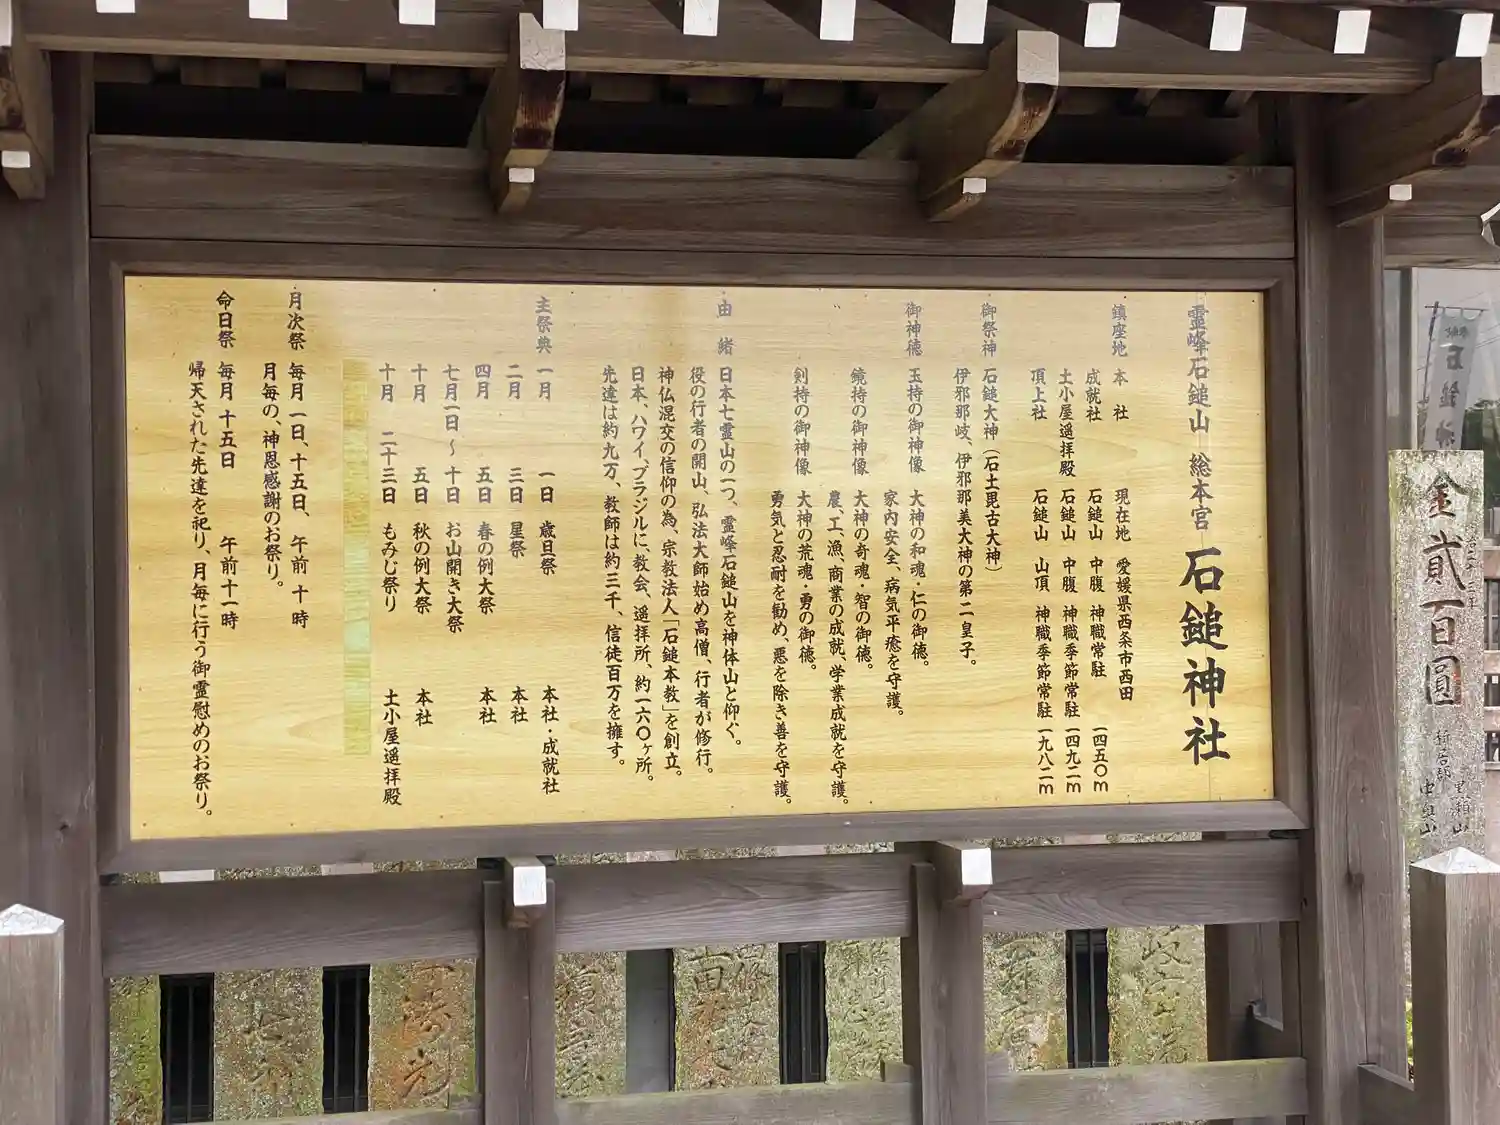 霊峰石鎚山 総本宮 石鎚神社
鎮座地 本社 現在地 愛媛県西条市西田
成就社 石鎚山 中腹 神職常駐 一四五〇m
土小屋遥拝殿 石鎚山 中腹 神職季節常駐 一四九二m
頂上社 石鎚山 山頂 神職季節常駐 一九八二m
御祭神 石鎚大神(石土毘古大神)
伊邪那岐、伊邪那美大神の第二皇子。
御神徳 玉持の御神像 大神の和魂・仁の御徳。
家内安全、病気平癒を守護。
鏡持の御神像 大神の奇魂・智の御徳。
農、工、漁、商業の成就、学業成就を守護。
剣持の御神像 大神の荒魂・勇の御徳。
勇気と忍耐を勧め、悪を除き善を守護。
由緒 日本七霊山の一つ、霊峰石鎚山を神体山と仰ぐ。
役の行者の開山、弘法大師始め高僧、行者が修行。
神仏混交の信仰の為、宗教法人「石鎚本教」を創立。
日本、ハワイ、ブラジルに、教会、遥拝所、約一六〇ヶ所。
先達は約九万、教師は約三千、信徒百万を擁す。
主祭典 一月 一日 歳旦祭 本社・成就社
二月 三日 星祭 本社
四月 五日 春の例大祭 本社
七月一日〜十日 お山開き大祭
十月 五日 秋の例大祭 本社
十月 二十三日 もみじ祭り 土小屋遥拝殿
月次祭 毎月 一日、十五日、午前 十時
月毎の、神恩感謝のお祭り。
命日祭 毎月 十五日 午前十一時
帰天された先達を祀り、月毎に行う御霊慰めのお祭り。
金貮百圓